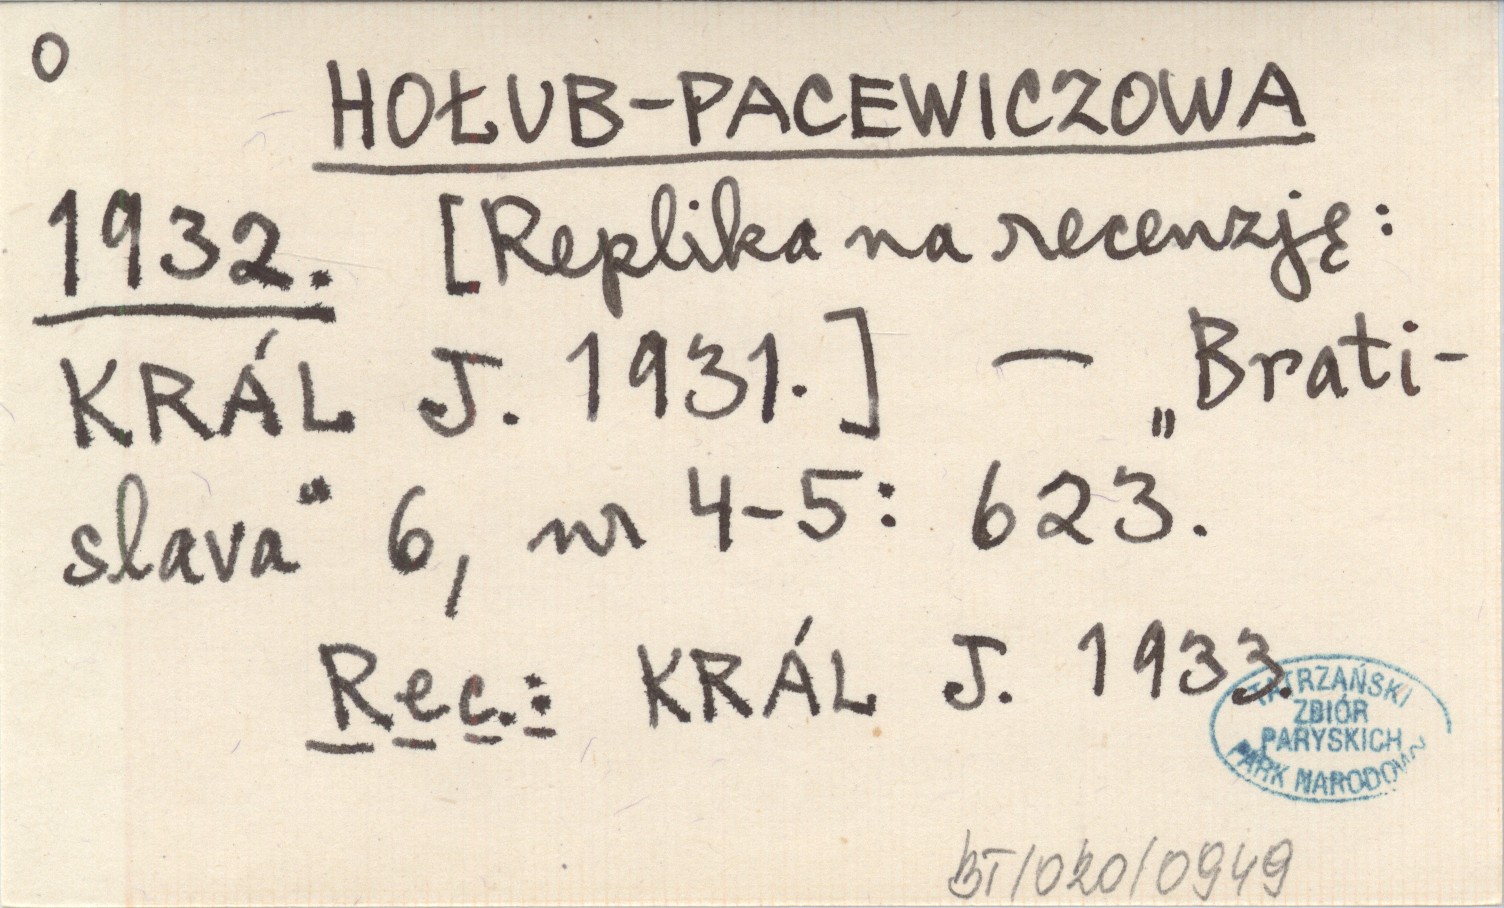 O
HOŁUB-PACEWICZOWA
1932. [Replika na recenzję:
KRÁL J. 1931.] — „Brati-
slava“ 6, nr 4-5: 623.
Rec.: KRÁL J. 1933.
TATRZAŃSKI
ZBIÓR
PARYSKICH
PARK NARODOWY
BT/020/0949